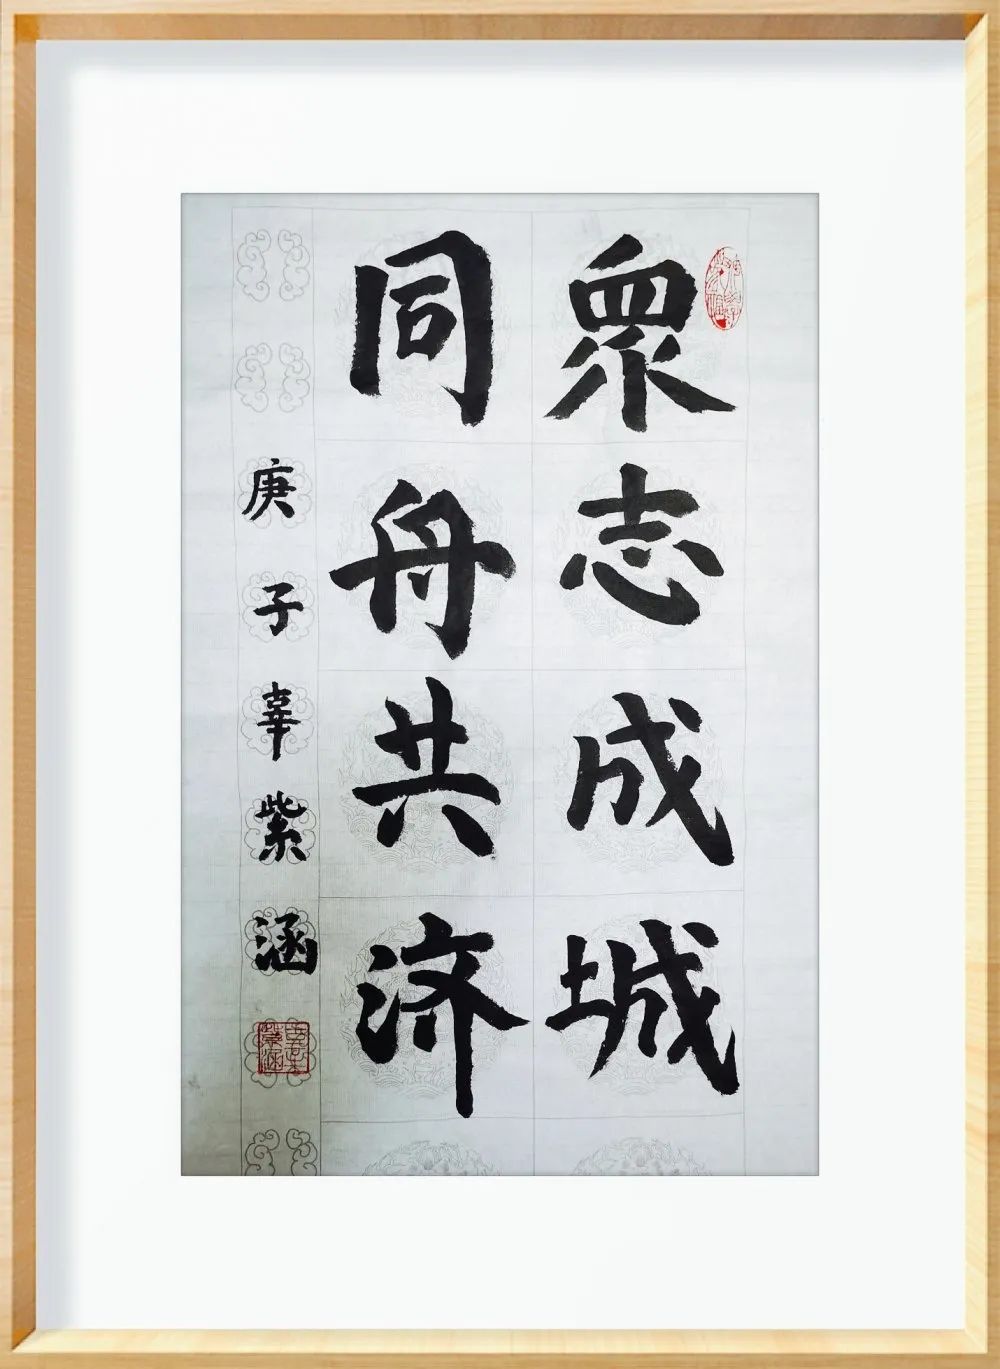 衆志成城
同舟共济
庚子辜紫涵